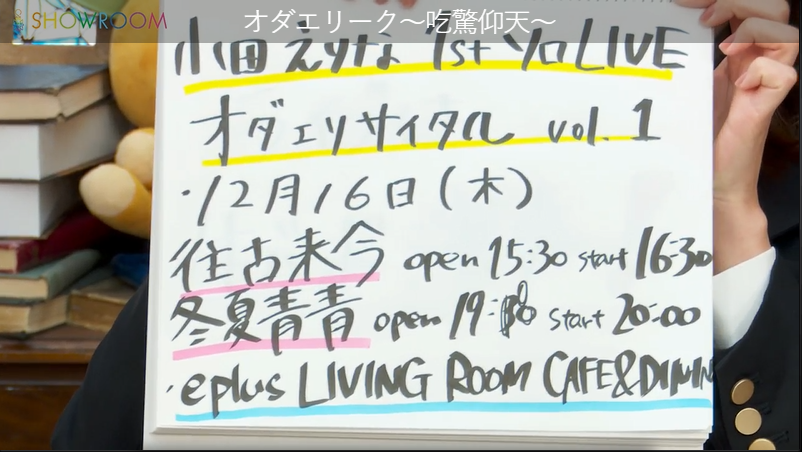 SHOWROOM
オダエリーク〜吃驚仰天〜
小田えりな 1stソロLIVE
オダエリサイタル vol.1
・12月16日(木)
往古来今 open 15:30 start 16:30
冬夏青青 open 19: start 20:00
・eplus LIVING ROOM CAFE&DININ